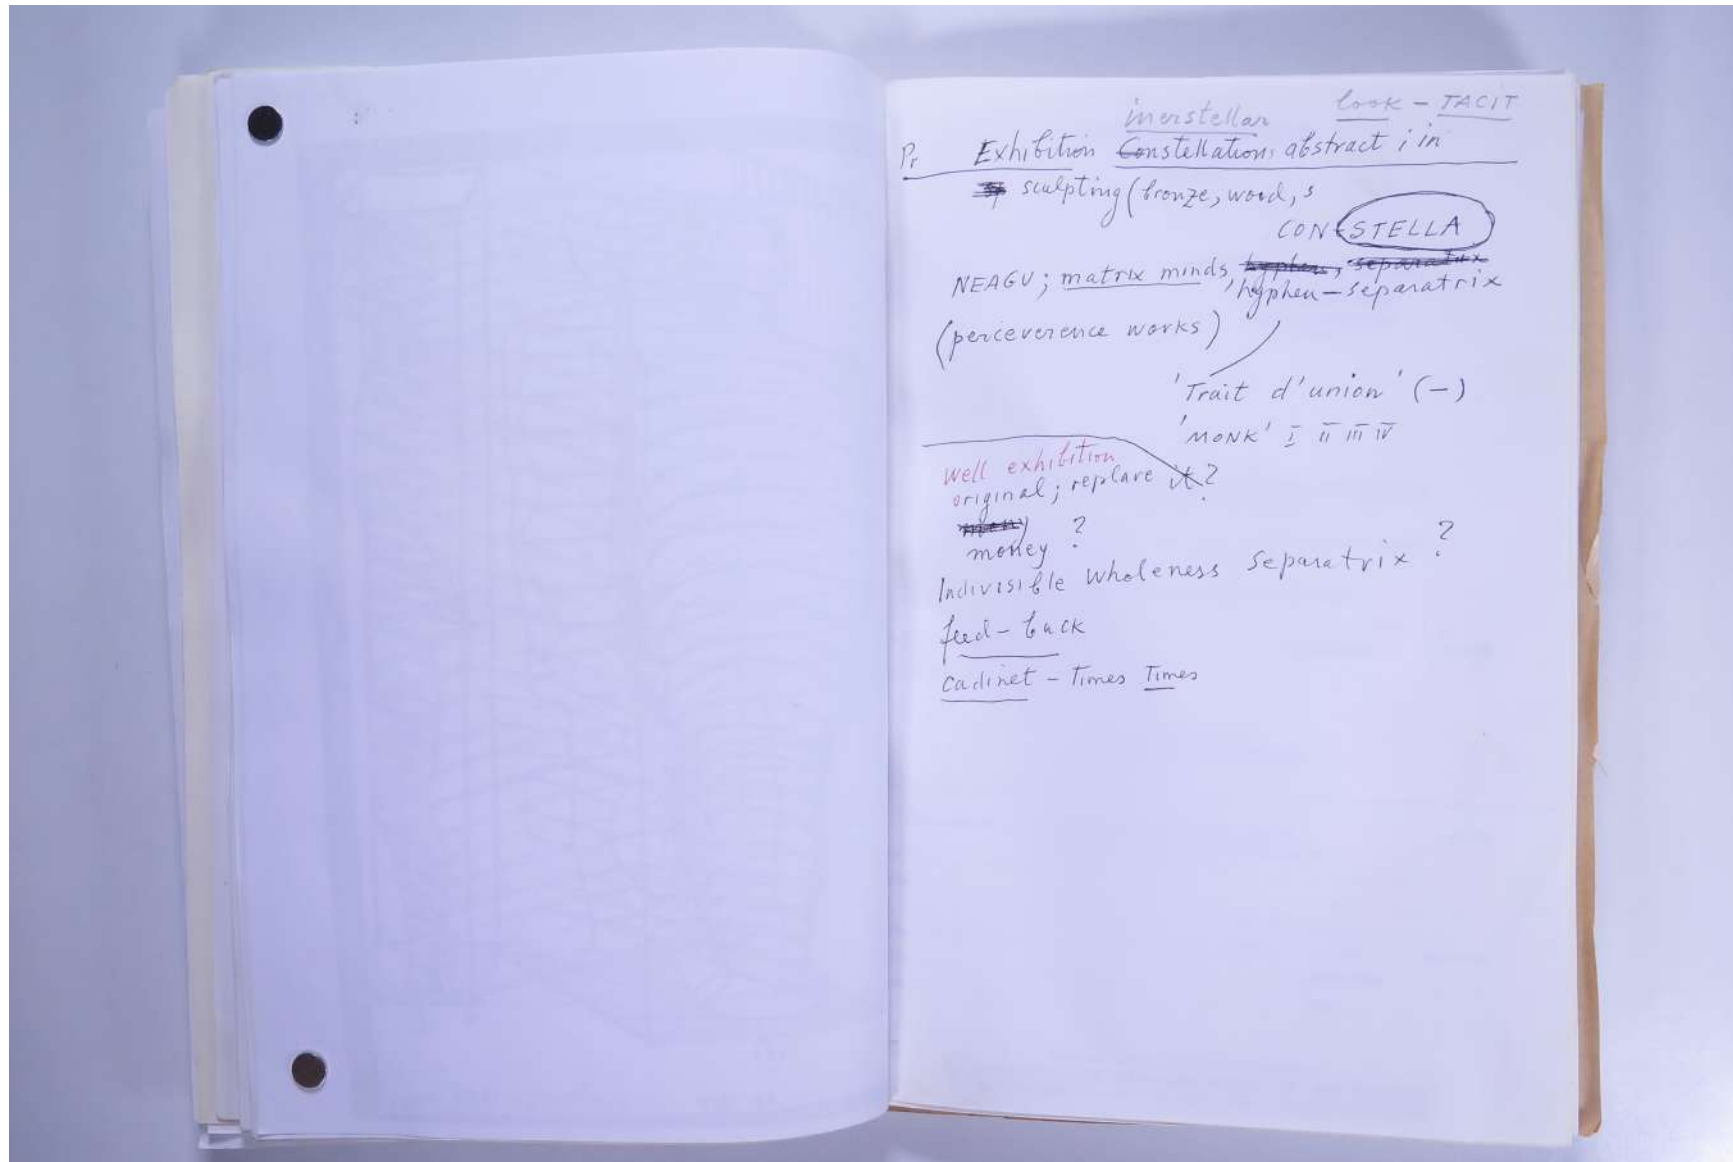 look - TACIT
inerstellar
Pr Exhibition Constellations abstract ; in
sculpting (bronze, wood, s
CON STELLA
NEAGU ; matrix minds, hyphen, separatrix
'hyphen - separatrix
(perceverence works)
'Trait d'union' (-)
'MONK' I II III IV
Well exhibition
original ; replare it ?
money ?
Indivisible wholeness separatrix ?
feed - back
cadinet - Times Times